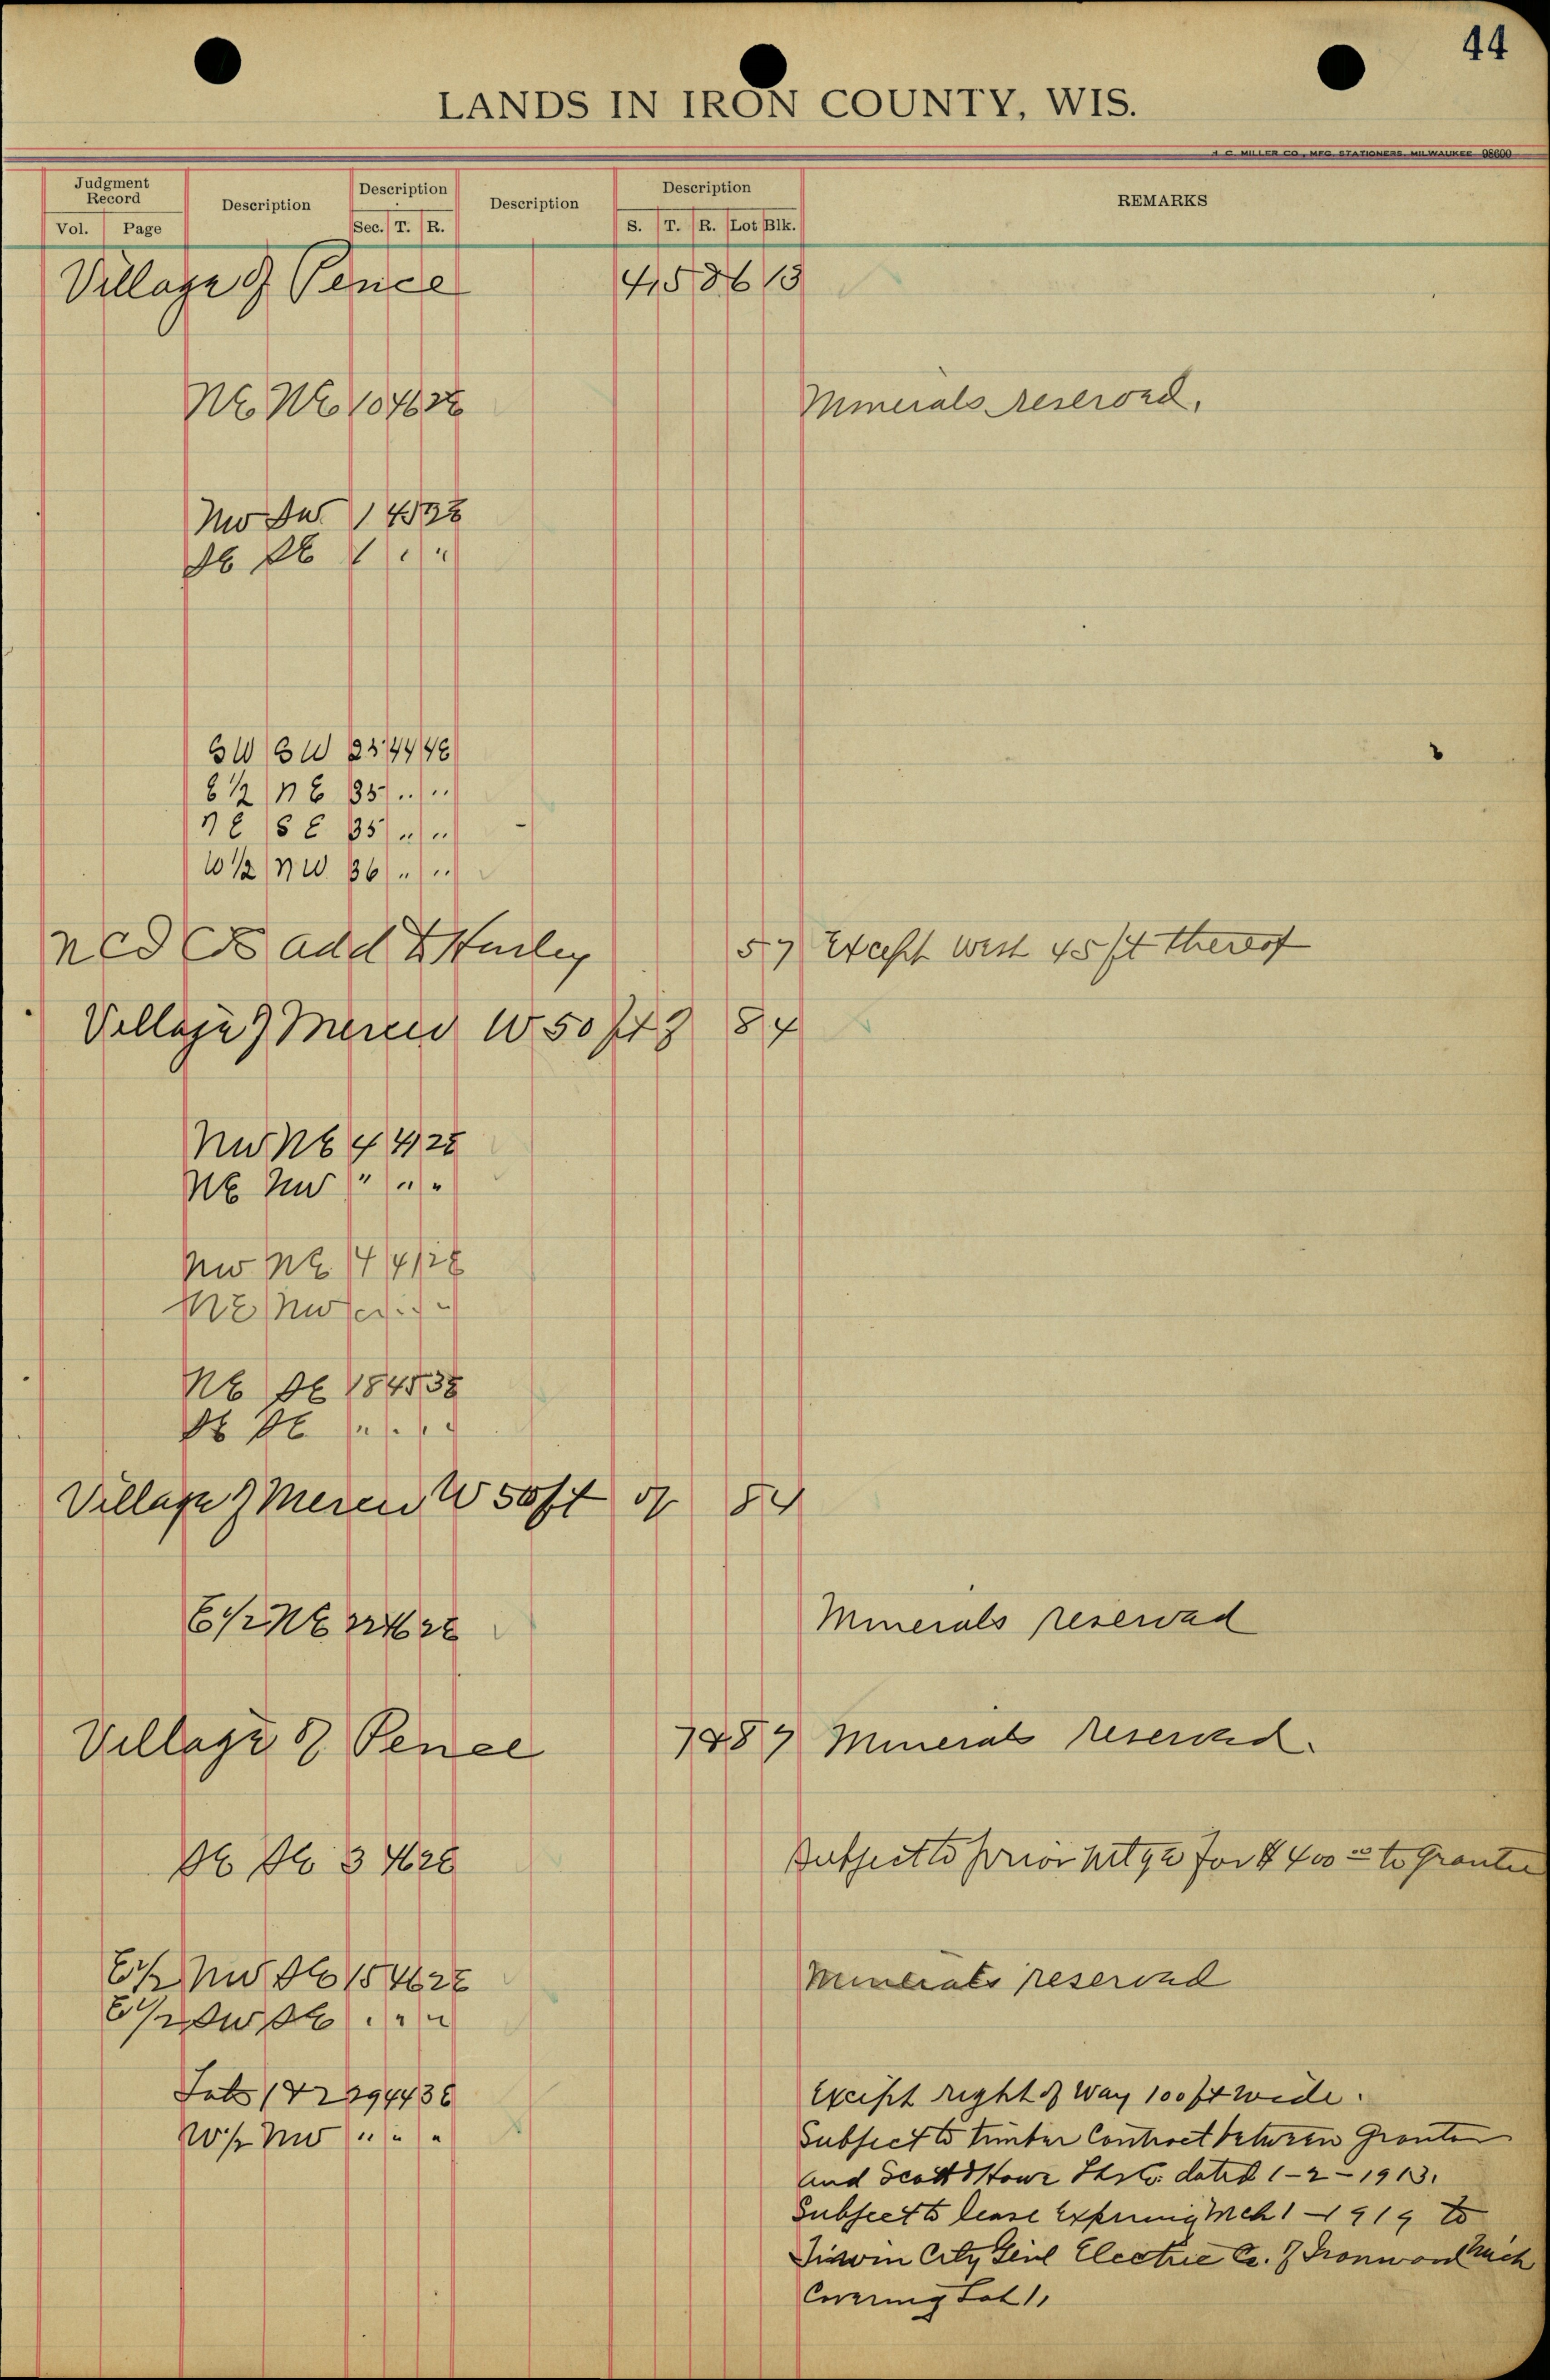 44
LANDS IN IRON COUNTY, WIS.
H. C. MILLER CO., MFG. STATIONERS, MILWAUKEE 98600
Judgment Record Description Description Description Description REMARKS
Vol. Page Sec. T. R. S. T. R. Lot Blk.
Village of Pence
NE NE 10 46 2E Minerals reserved.
NW SW 1 45 3E
SE SE 1 " "
SW SW 23 44 4E
E 1/2 NE 35 " "
NE SE 35 " "
W 1/2 NW 36 " "
add to Hurley 5 7 Except west 45 ft thereof
Village of Mercer W 50 ft of 8 4
NW NE 4 41 2E
NE NW " " "
NW NE 4 41 2E
NE NW " " "
NE SE 18 45 3E
SE SE " " "
Village of Mercer W 50 ft of 8 4
E 1/2 NE 22 46 2E Minerals reserved
Village of Pence 7&8 7 Minerals reserved.
SE SE 3 46 2E Subject to prior mtge for $400 00 to Grantee
E 1/2 NW SE 15 46 2E Minerals reserved
E 1/2 SW SE " " "
Lots 1 & 2 29 44 3E Except right of Way 100 ft wide.
W 1/2 NW " " " Subject to timber Contract between Grantor
and Scott & Howe dated 1-2-1913.
Subject to lease Expiring Mch 1-1919 to
City Genl Electric Co. of Ironwood Mich
Covering Lot 1.